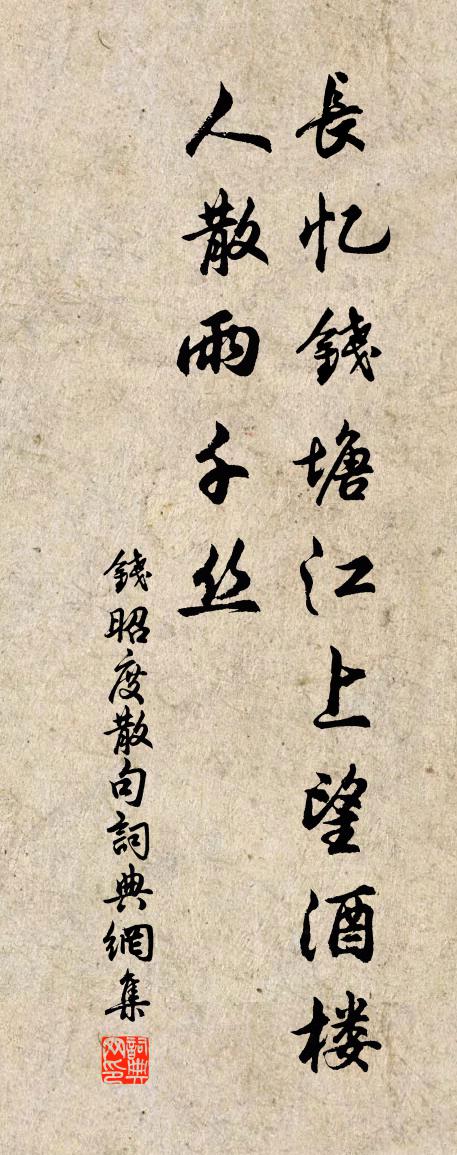 長忆錢塘江上望酒楼
人散雨千丝
錢昭度散句詞典網集
詞典网印